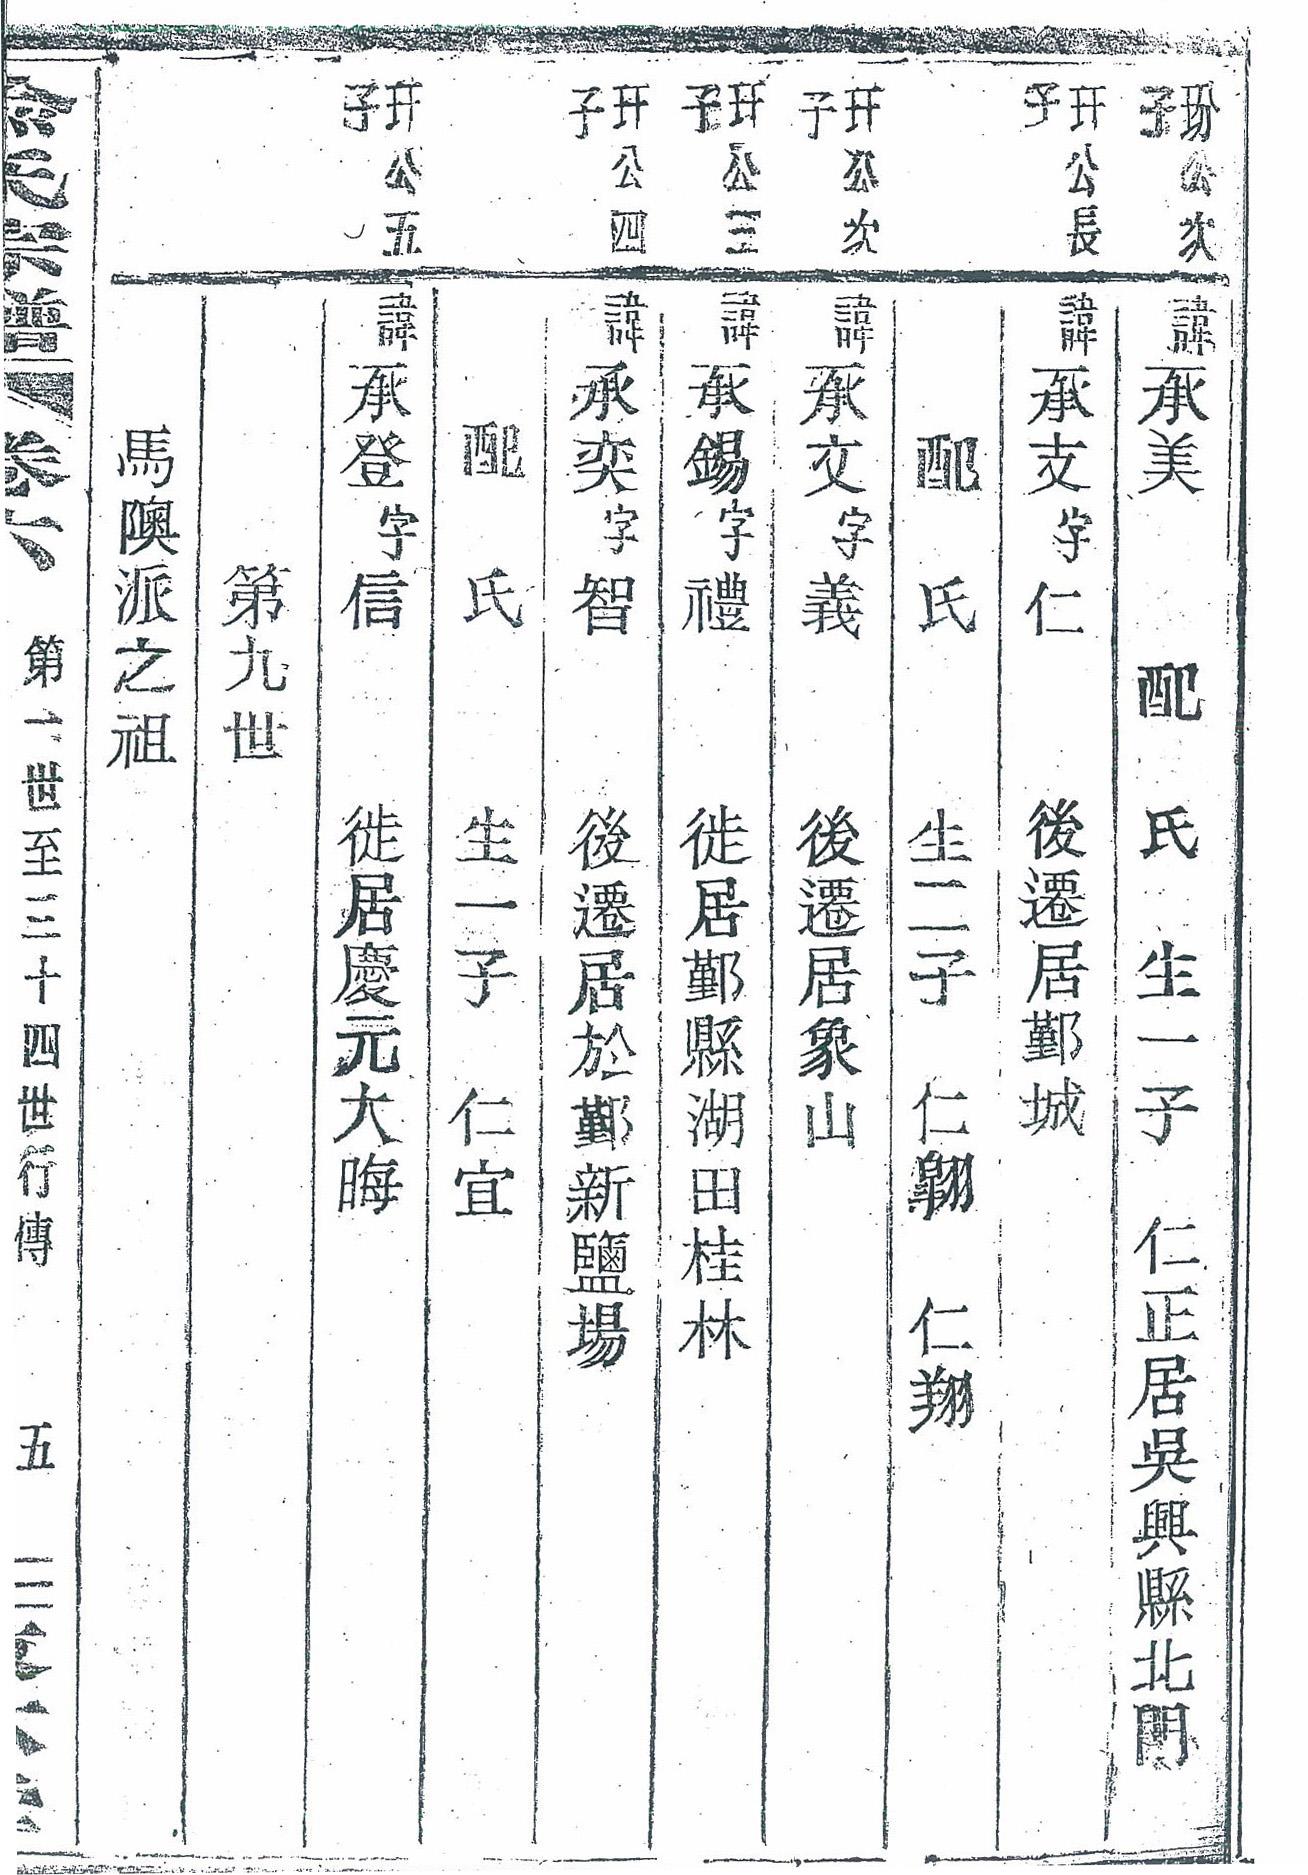 玢公次子
諱承美 配 氏 生一子 仁正居吳興縣北門
玕公長子
諱承支字仁 後遷居鄞城
配 氏 生二子 仁翺 仁翔
玕公次子
諱承文字義 後遷居象山
玕公三子
諱承錫字禮 徙居鄞縣湖田桂林
玕公四子
諱承奕字智 後遷居於鄞新鹽場
配 氏 生一子 仁宜
玕公五子
諱承登字信 徙居慶元大晦
第九世
馬隩派之祖
氏宗譜 卷六 第一世至三十四世行傳 五